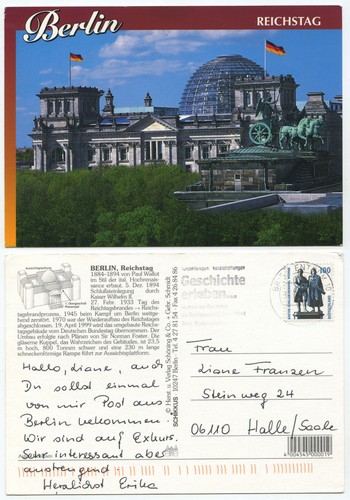 Berlin
REICHSTAG
BERLIN, Reichstag
1884-1894 von Paul Wallot
im Stil der ital. Hochrenais-
sance erbaut. 5. Dez. 1894
Schlußsteinlegung durch
Kaiser Wilhelm II.
27. Febr. 1933 Tag des
Reichstagsbrandes - Reichs-
tagsbrandprozess, 1945 beim Kampf um Berlin weitge-
hend zerstört. 1970 war der Wiederaufbau des Reichstages
abgeschlossen. 19. April 1999 wird das umgebaute Reichs-
tagsgebäude vom Deutschen Bundestag übernommen. Der
Umbau erfolgte nach Plänen von Sir Norman Foster. Die
gläserne Kuppel, das Wahrzeichen des Gebäudes, ist 23,5
m hoch, 800 Tonnen schwer und eine 230 m lange
schneckenförmige Rampe führt zur Aussichtsplattform.
Hallo, Liane, auch
Du sollst einmal
von mir Post aus
Berlin bekommen.
Wir sind auf Exkurs.
Sehr interessant aber
anstrengend -
Herzlichst Erika
SCHIKKUS
10247 Berlin
4 27 81 54 · Fax 4 26 84 86
Geschichte
erleben
100
Frau
Liane Franzen
Steinweg 24
06110 Halle/Saale
4 004545 000019